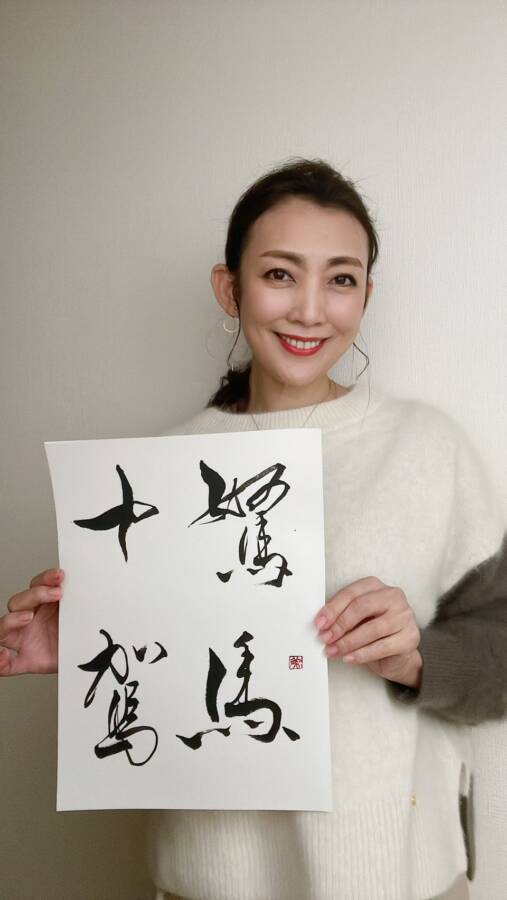 駑馬
十駕